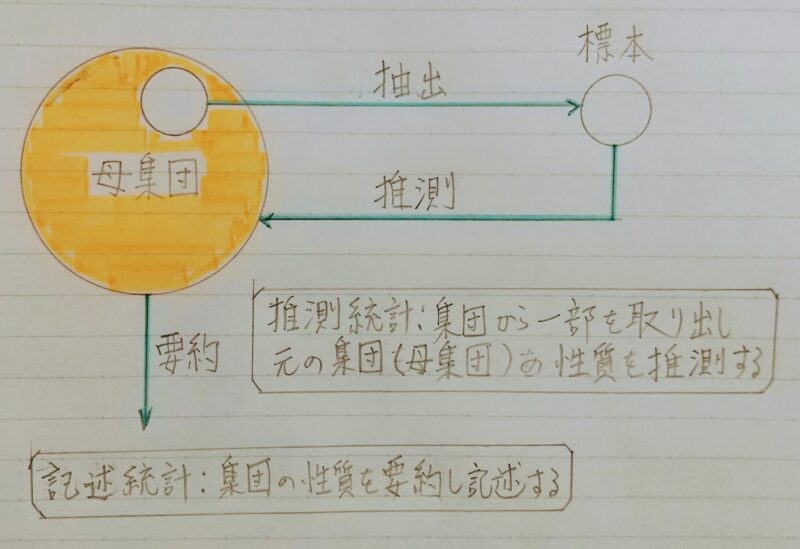 標本
抽出
母集団
推測
推測統計:集団から一部を取り出し
元の集団(母集団)の性質を推測する
要約
記述統計:集団の性質を要約し記述する